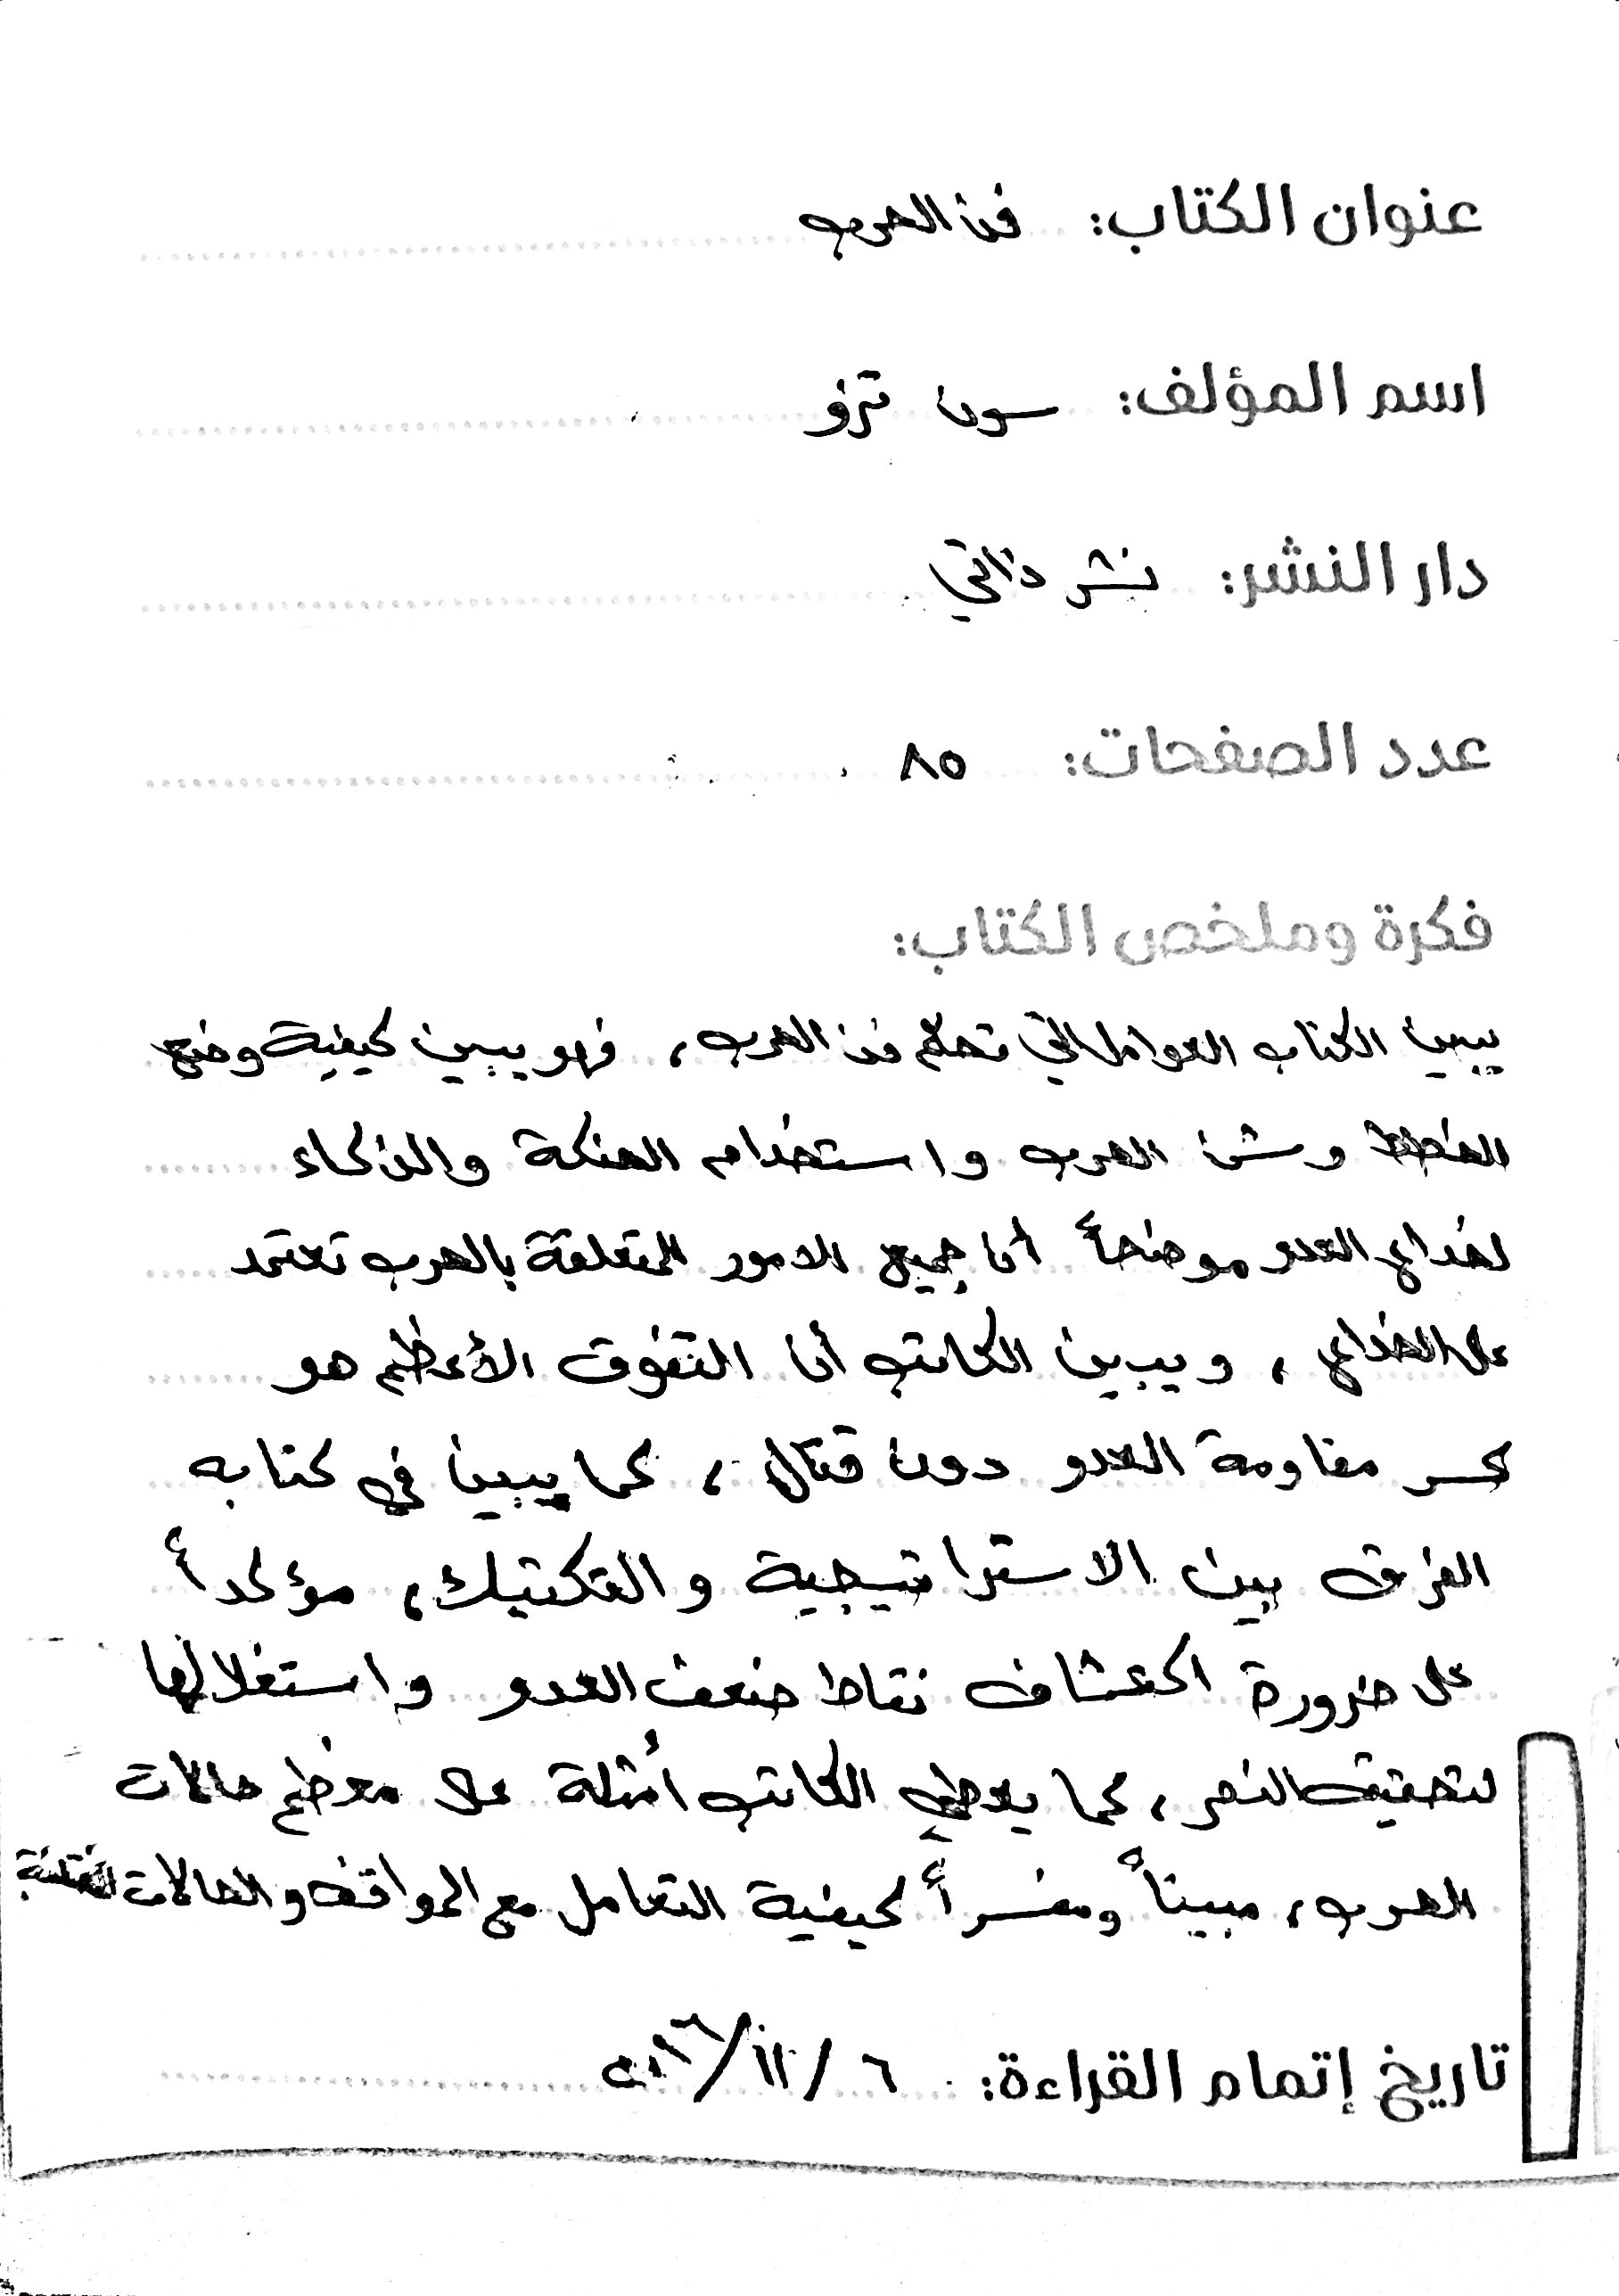 عنوان الكتاب: فن الحرب
اسم المؤلف: سون تزو
دار النشر: نشر ذاتي
عدد الصفحات: ٨٥
فكرة وملخص الكتاب:
يبين الكتاب العوامل التي تحكم فن الحرب، فهو يبين كيفية وضع
الخطط وشن الحرب واستخدام الحنكة والذكاء
لخداع العدو موضحاً أن جميع الامور المتعلقة بالحرب تعتمد
على الخداع، ويبين الكاتب أن التفوق الأعظم هو
كسر مقاومة العدو دون قتال، كما يبين في كتابه
الفرق بين الاستراتيجية والتكتيك، مؤكداً
على ضرورة اكتشاف نقاط ضعف العدو واستغلالها
لتحقيق النصر، كما يعطي الكاتب أمثلة على معظم حالات
الحرب، مبيناً ومفسراً كيفية التعامل مع المواقف والحالات
تاريخ إتمام القراءة: ٦ / ١١ /